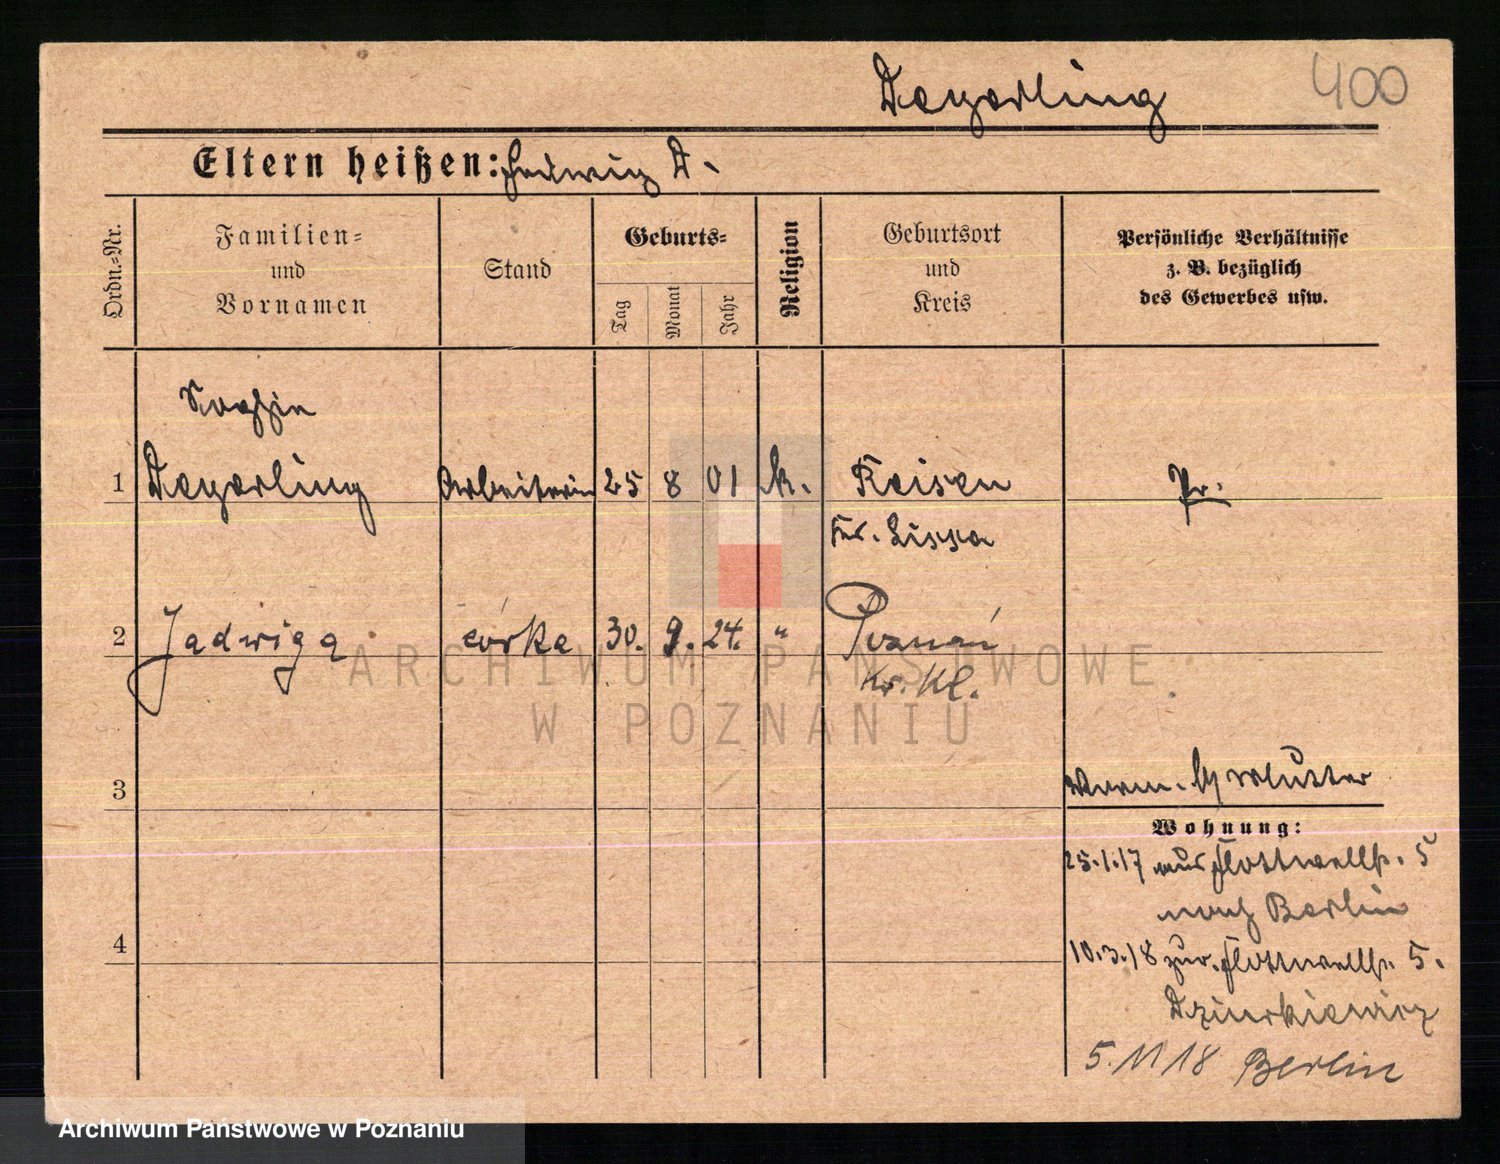 Degerling
400
Eltern heißen: Hedwig D.
Ordn.=Nr.
Familien=
und
Vornamen
Stand
Geburts=
Tag
Monat
Jahr
Religion
Geburtsort
und
Kreis
Persönliche Verhältnisse
z. B. bezüglich
des Gewerbes usw.
Sophie
1 Degerling Arbeiterin 25 8 01 k. Reisen Pr.
Kr. Lissa
2 Jadwiga córka 30. 9. 24. " Poznań
Kr. Kl.
3
Mutter
Wohnung:
25.1.17 aus Flottwellstr. 5
nach Berlin
4
10.3.18 zur. Flottwellstr. 5.
Dziurkiewicz
5.11 18 Berlin
ARCHIWUM PAŃSTWOWE
W POZNANIU
Archiwum Państwowe w Poznaniu